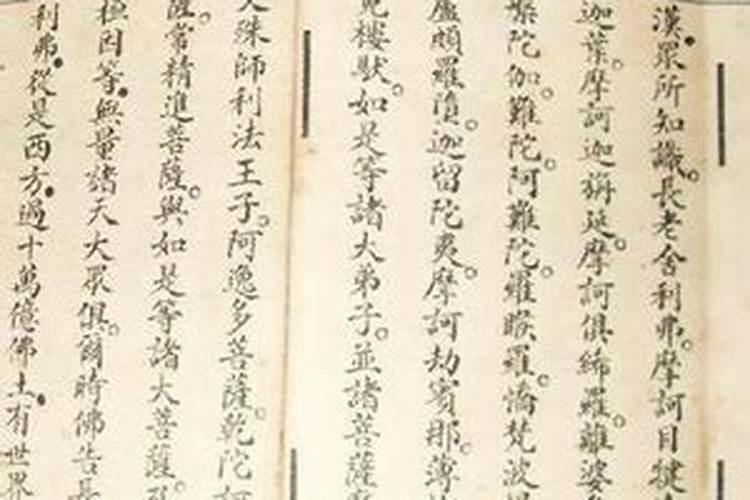 漢。眾所知識。長老舍利弗。摩訶目犍
迦葉。摩訶迦旃延。摩訶俱絺羅。離婆
槃陀伽。難陀。阿難陀。羅睺羅。憍梵波
盧頗羅墮。迦留陀夷。摩訶劫賓那。薄
樓馱。如是等諸大弟子。並諸菩薩摩
殊師利法王子。阿逸多菩薩。乾陀訶
薩。常精進菩薩。與如是等諸大菩薩。
桓因等。無量諸天大眾俱。爾時佛告長
利弗。從是西方。過十萬億佛土。有世界